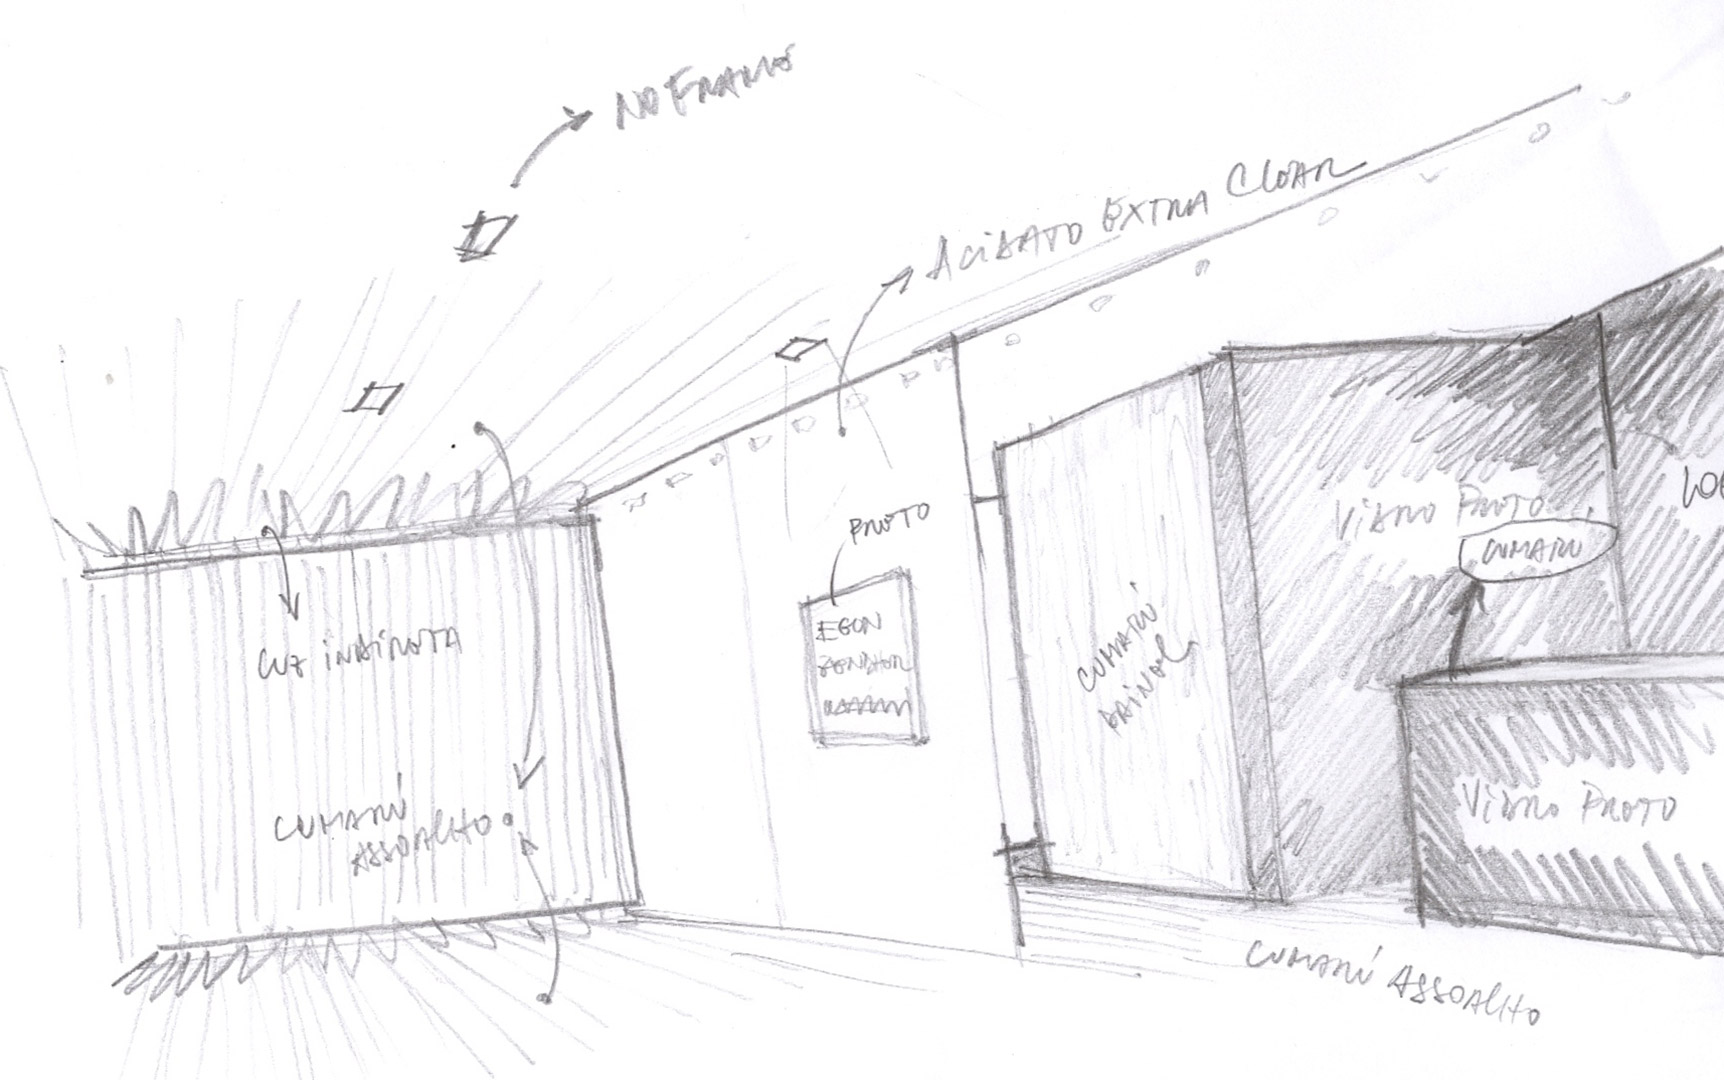 NO FRAME
ACIDATO EXTRA CLEAR
PRETO
EGON
ZENDHER
LUZ INDIRETA
CUMARÚ
ASSOALHO
CUMARÚ
PAINEL
VIDRO PRETO
CUMARU
VIDRO PRETO
CUMARÚ ASSOALHO